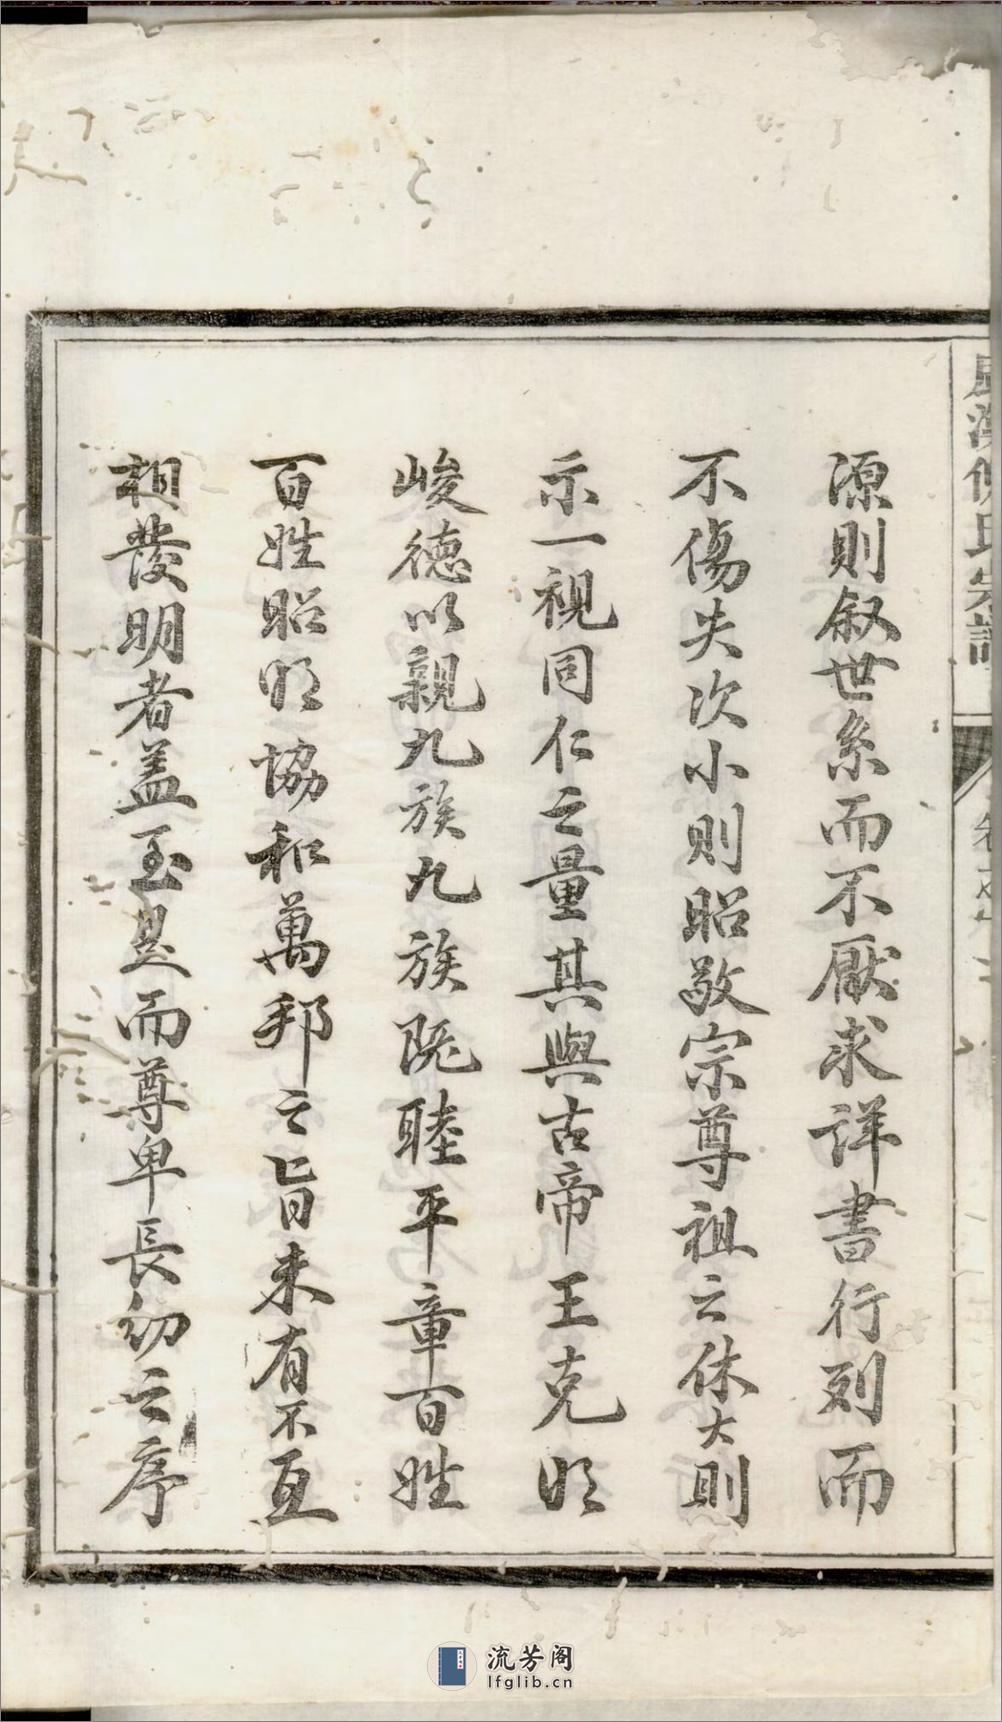 源則叙世系而不厭求詳書行列而
不傷失次小則昭敬宗尊祖之休大則
示一視同仁之量其與古帝王克明
峻德以親九族九族既睦平章百姓
百姓昭明協和萬邦之旨未有不互
相發明者盖至是而尊卑長幼之序
氏宗譜
流芳阁
lfglib.cn